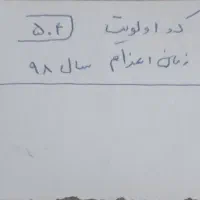 کد اولویت ۵.۴
زمان اعزام سال ۹۸